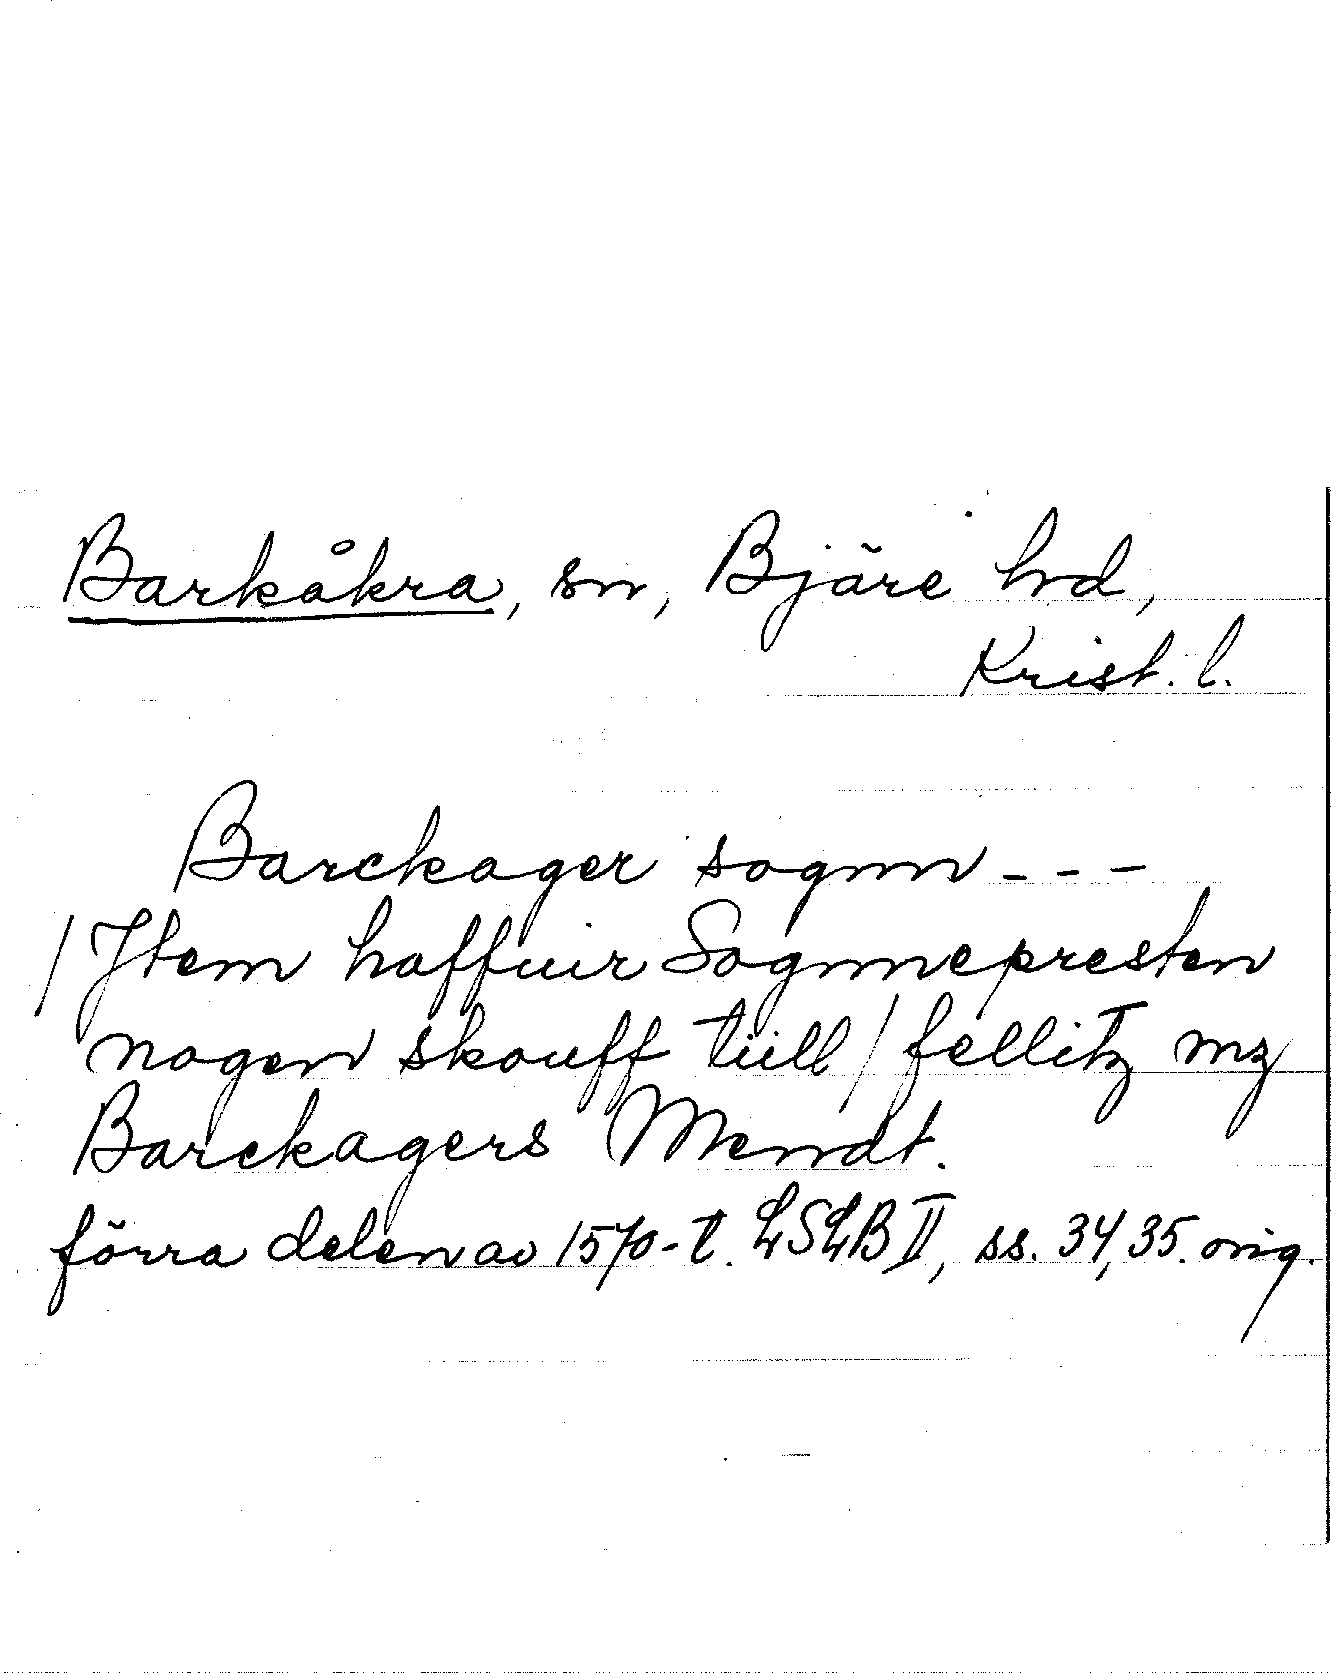 Barkåkra, sn, Bjäre hd,
Krist. l.
Barckager sognn - - -
/ Jtem haffuir Sognnepresten
nogen skouff tiill / fellitz mz
Barckagers Mendt.
förra delen av 1570-t. LSLB II, ss. 34, 35. orig.